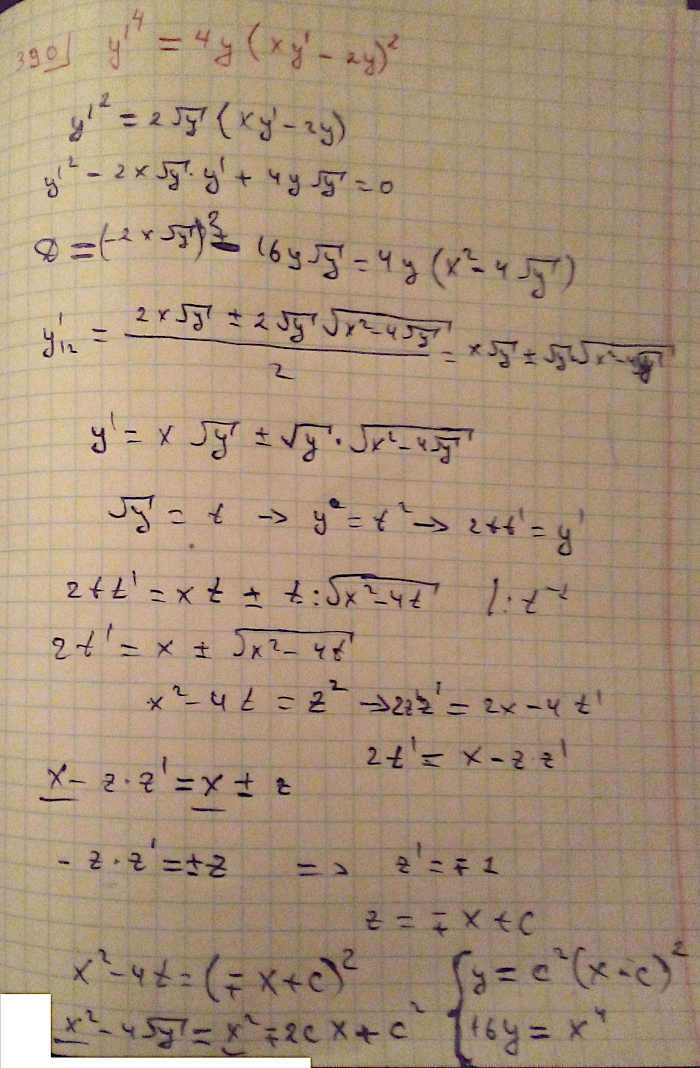 390] y'⁴ = 4y (xy' - 2y)²
y'² = 2√y (xy' - 2y)
y'² - 2x√y · y' + 4y√y = 0
D = (-2x√y)² - 16y√y = 4y (x² - 4√y)
y'₁₂ = (2x√y ± 2√y √(x² - 4√y)) / 2 = x√y ± √y √(x² - 4√y)
y' = x √y ± √y · √(x² - 4√y)
√y = t → y = t² → 2tt' = y'
2tt' = xt ± t · √(x² - 4t) | : t
2t' = x ± √(x² - 4t)
x² - 4t = z² → 2zz' = 2x - 4t'
2t' = x - z z'
x - z · z' = x ± z
- z · z' = ± z => z' = ∓ 1
z = ∓ x + c
x² - 4t = (∓ x + c)²
x² - 4√y = x² ∓ 2cx + c²
{ y = c²(x - c)²
16y = x⁴